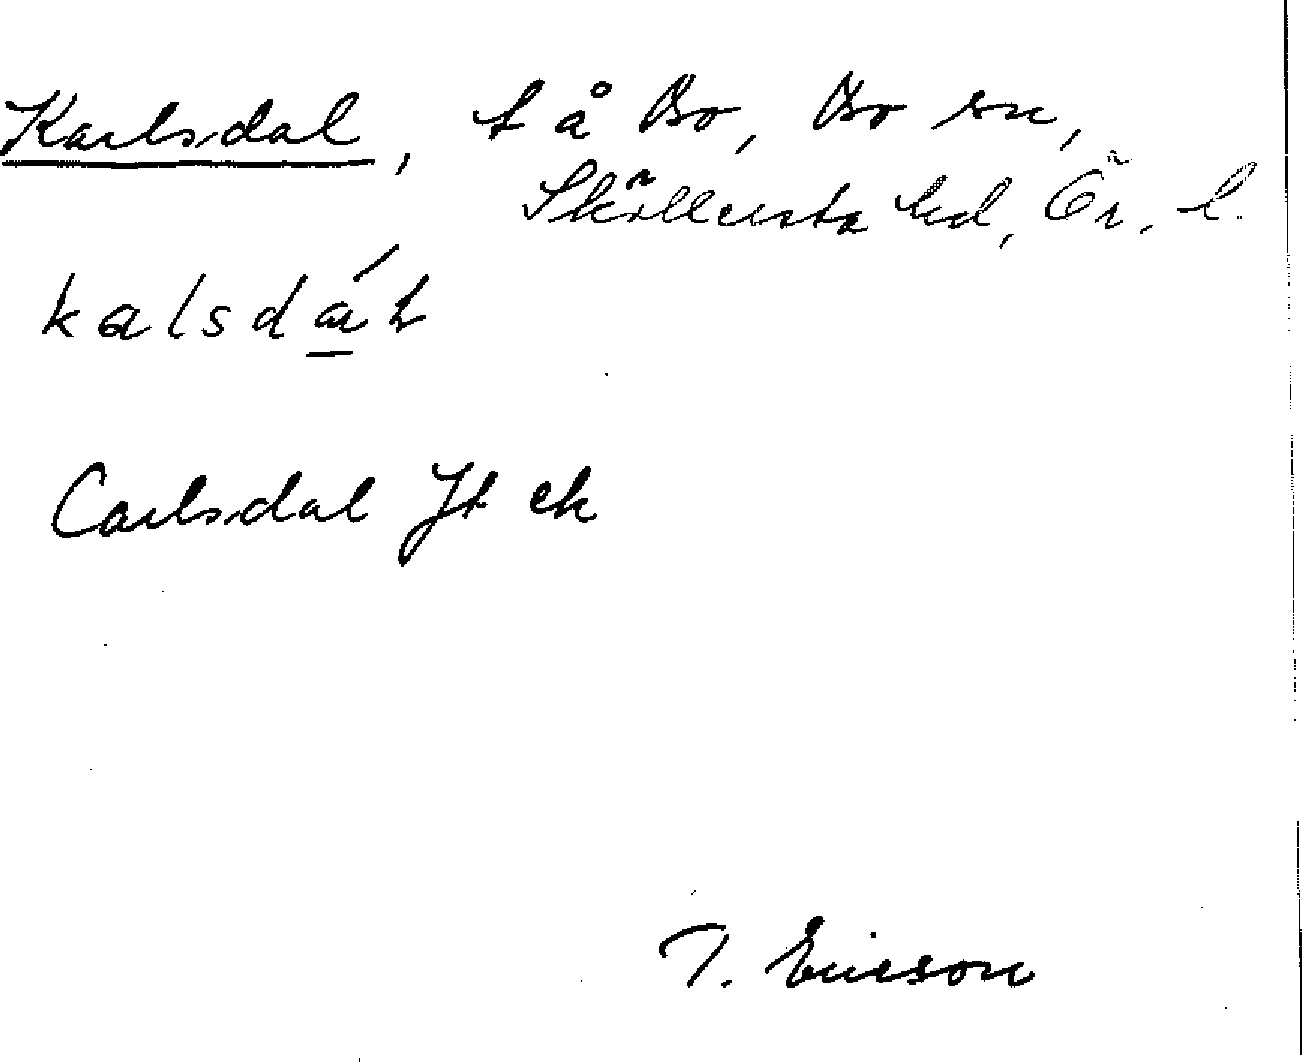 Karlsdal, t å Bo, Bo sn,
Sköllersta hd, Ör. l.
kalsdát
Carlsdal Jt ek
T. Ericson